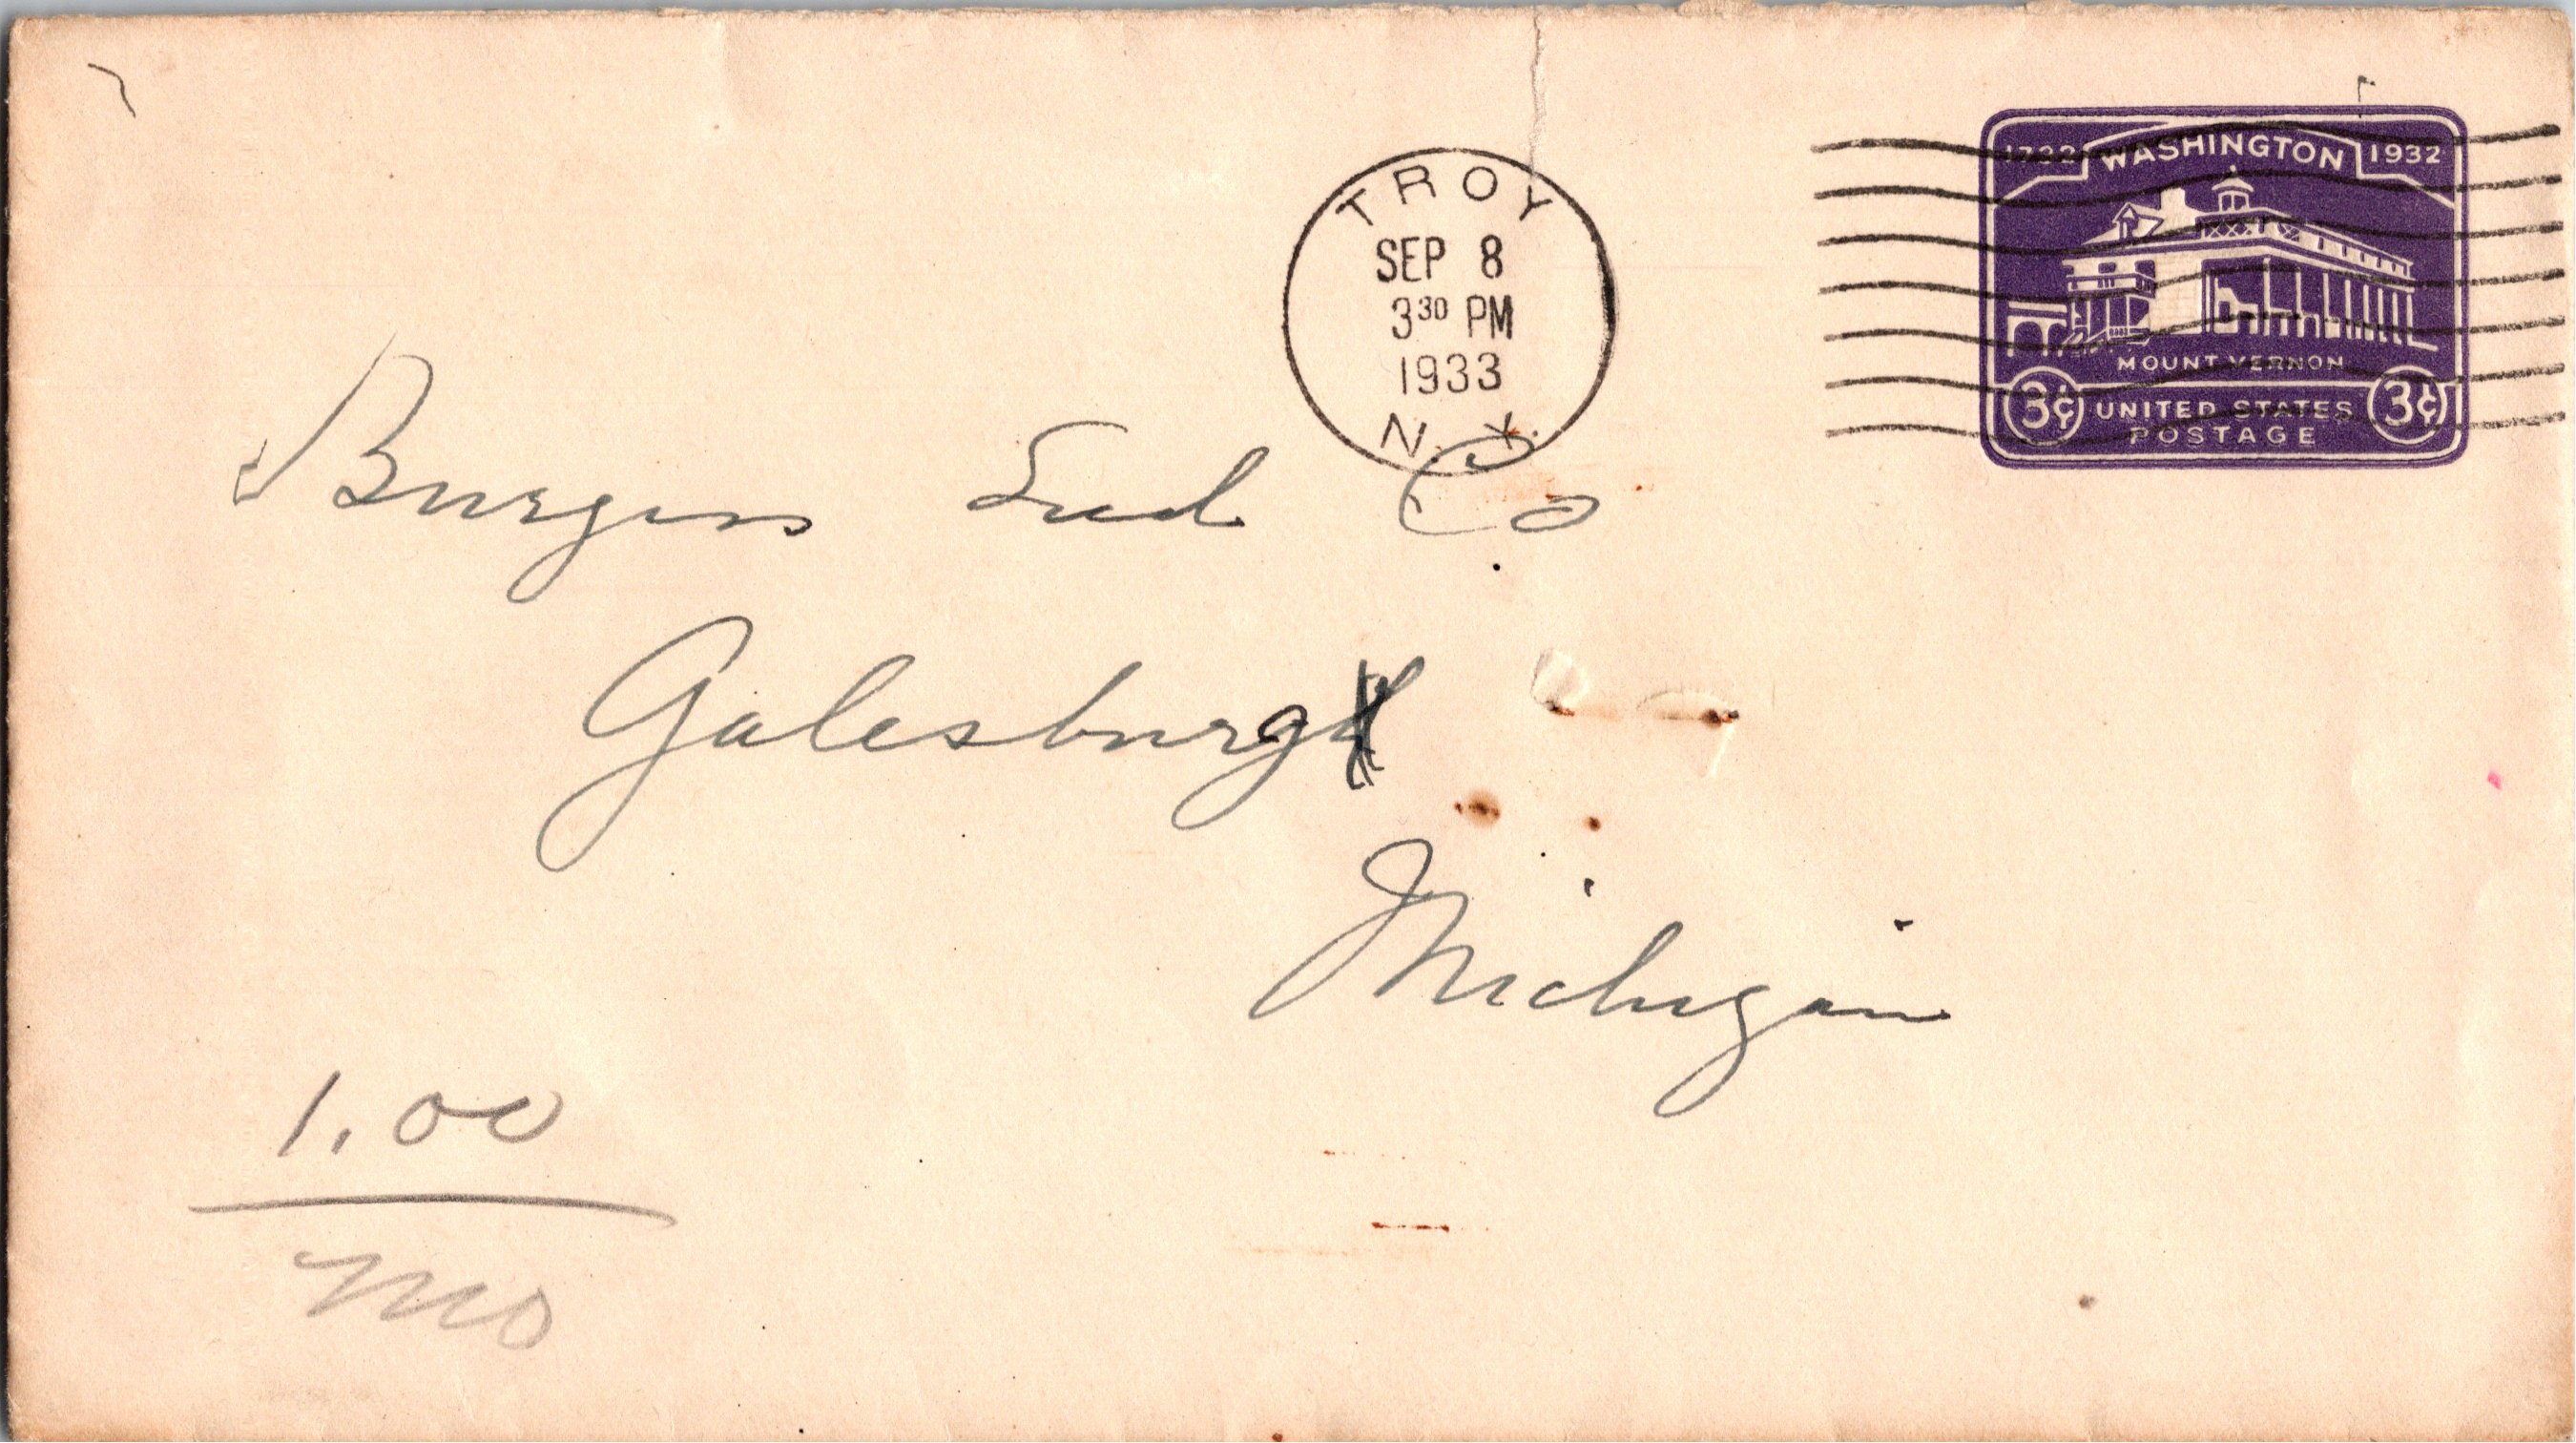 TROY
SEP 8
3 30 PM
1933
N. Y.
1732 WASHINGTON 1932
MOUNT VERNON
3¢ UNITED STATES 3¢
POSTAGE
Burgess Seed Co
Galesburg
Michigan
1.00
MO